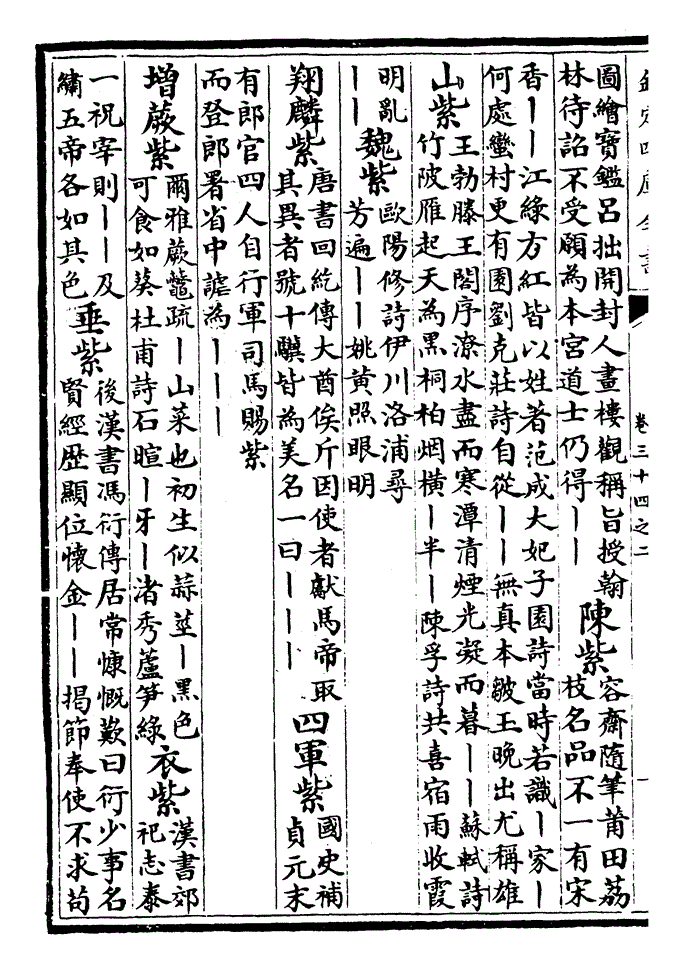 欽定四庫全書
卷三十四之二
圖繪寶鑑呂拙開封人畫樓觀稱旨授翰
林待詔不受願為本宮道士仍得丨丨
陳紫
容齋隨筆莆田荔
枝名品不一有宋
香丨丨江綠方紅皆以姓著范成大妃子園詩當時若識丨家丨
何處蠻村更有園劉克莊詩自從丨丨無真本皺玉晚出尤稱雄
山紫
王勃滕王閣序潦水盡而寒潭清煙光凝而暮丨丨蘇軾詩
竹陂雁起天為黑桐柏烟橫丨半丨陳孚詩共喜宿雨收霞
明亂
丨丨
魏紫
歐陽修詩伊川洛浦尋
芳遍丨丨姚黃照眼明
翔麟紫
唐書回紇傳大酋俟斤因使者獻馬帝取
其異者號十驥皆為美名一曰丨丨丨
四軍紫
國史補
貞元末
有郎官四人自行軍司馬賜紫
而登郎署省中謔為丨丨丨
增蕨紫
爾雅蕨虌疏丨山菜也初生似蒜莖丨黑色
可食如葵杜甫詩石暄丨牙丨渚秀蘆笋綠
衣紫
漢書郊
祀志泰
一祝宰則丨丨及
繡五帝各如其色
垂紫
後漢書馮衍傳居常慷慨歎曰衍少事名
賢經歷顯位懷金丨丨揭節奉使不求苟